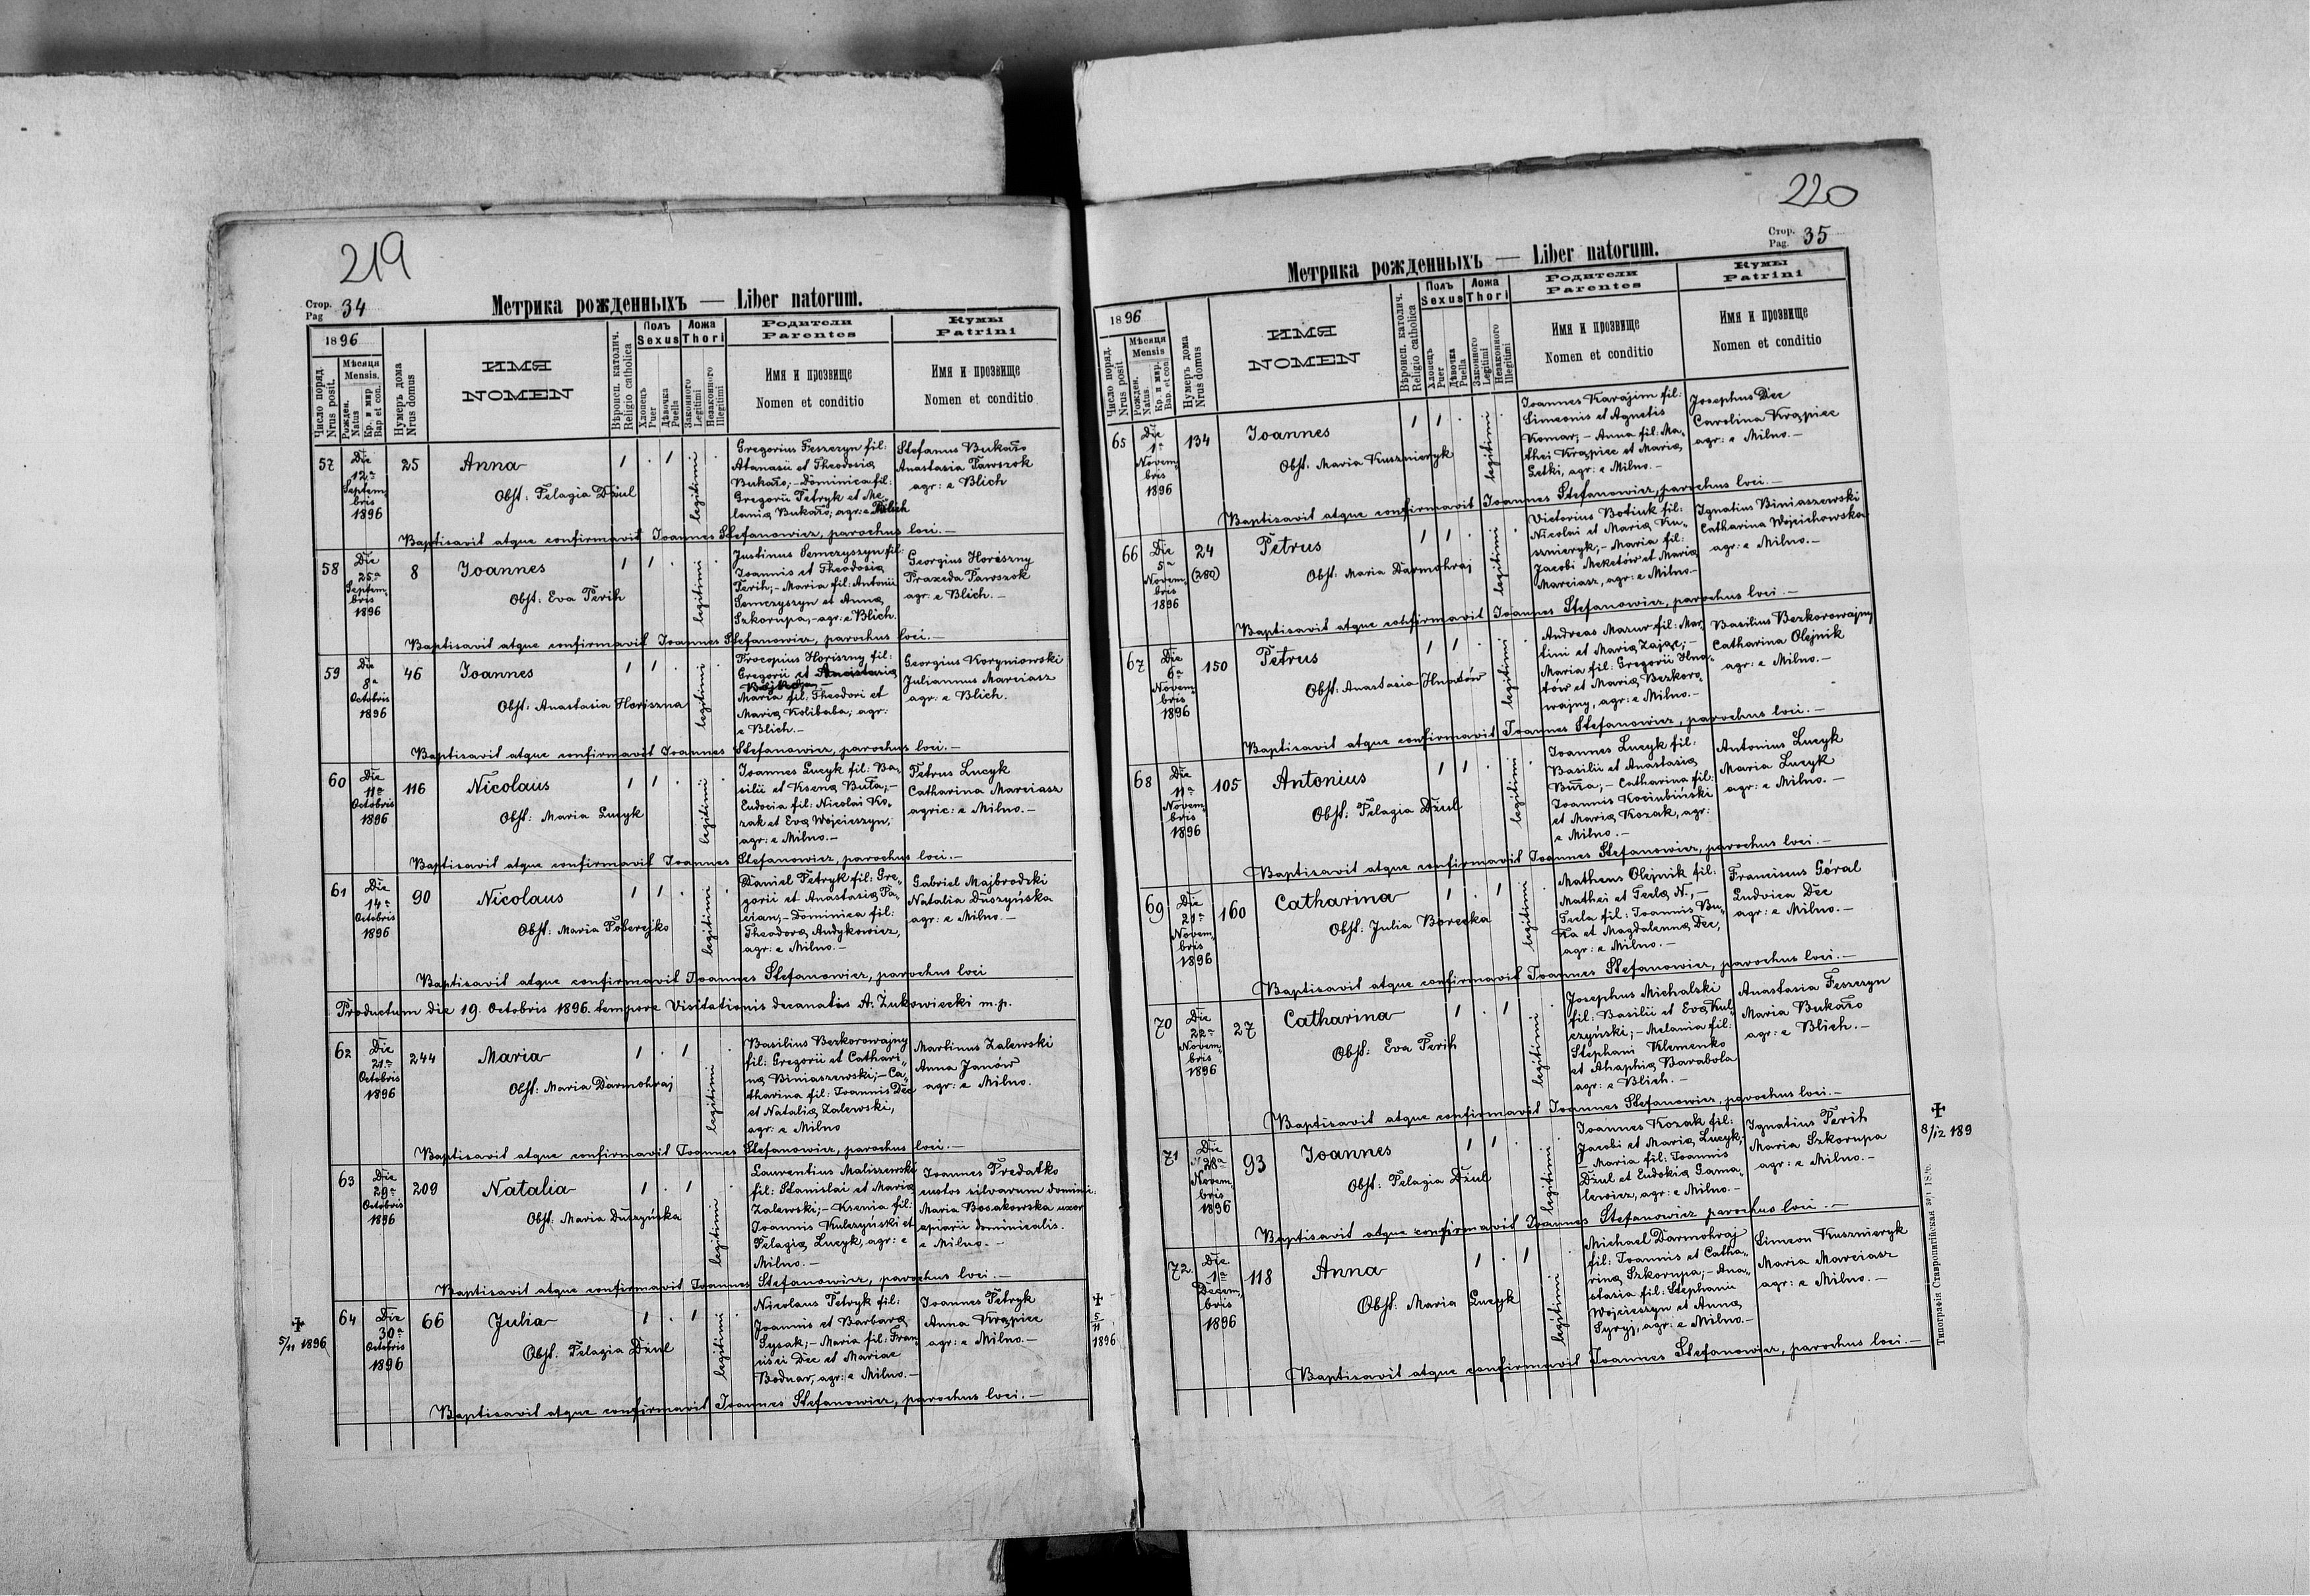 219
Стор. Pag 34
Метрика рожденныхъ — Liber natorum.
1896
Число поряд. Nrus posit.
Мѣсяця Mensis.
Рожден. Natus
Кр. и мир Bap et con.
Нумеръ дома Nrus domus
ИМЯ
NOMEN
Вѣроисп. католич. Religio catholica
Полъ Sexus
Хлопецъ Puer
Дѣвочка Puella
Ложа Thori
Законного Legitimi
Незаконного Illegitimi
Родители
Parentes
Имя и прозвище
Nomen et conditio
Кумы
Patrini
Имя и прозвище
Nomen et conditio
57 Die 12ª Septembris 1896 25 Anna 1 . 1 legitimi .
Obst: Pelagia Dżul
Gregorius Feszczyn fil:
Atanasii et Theodosia
Bukało; - Dominica fil:
Gregorii Petryk et Me-
lania Bukało; agr: e Blich
Stefanus Bukało
Anastasia Pawszok
agr: e Blich
Baptisavit atque confirmavit Joannes Stefanowicz, parochus loci. —
58 Die 25ª Septembris 1896 8 Joannes 1 1 . legitimi .
Obst: Eva Perih
Justinus Semczyszyn fil:
Joannis et Theodosia
Perih; - Maria fil: Antonii
Semczyszyn et Anna
Szkorupa, - agr: e Blich.
Georgius Horiszny
Praxeda Pawszok
agr: e Blich. —
Baptisavit atque confirmavit Joannes Stefanowicz, parochus loci. —
59 Die 8ª Octobris 1896 46 Joannes 1 1 . legitimi .
Obst: Anastasia Horiszna
Procopius Horiszny fil:
Gregorii et Anastasia
Maria fil: Theodori et
Maria Kolibaba; agr:
e Blich. —
Georgius Koryniowski
Juliannus Marciasz
agr: e Blich.
Baptisavit atque confirmavit Joannes Stefanowicz, parochus loci. —
60 Die 11ª Octobris 1896 116 Nicolaus 1 1 . legitimi .
Obst: Maria Lucyk
Joannes Lucyk fil: Ba-
silii et Ksena Buła; —
Eudocia fil: Nicolai Ko-
zak et Eva Wojcieszyn,
agr: e Milno. —
Petrus Lucyk
Catharina Marciasz
agric: e Milno. —
Baptisavit atque confirmavit Joannes Stefanowicz, parochus loci. —
61 Die 14ª Octobris 1896 90 Nicolaus 1 1 . legitimi .
Obst: Maria Poberejko
Daniel Petryk fil: Gre-
gorii et Anastasia Pa-
cian, - Dominica fil:
Theodora Andykowicz,
agr: e Milno. —
Gabriel Majbrodski
Natalia Duszyńska
agr: e Milno. —
Baptisavit atque confirmavit Joannes Stefanowicz, parochus loci
Productum die 19. Octobris 1896. tempore Visitationis decanatûs A. Żukowiecki m.p.
62 Die 21ª Octobris 1896 244 Maria 1 . 1 legitimi .
Obst: Maria Darmohraj
Basilius Bezkorowajny
fil: Gregorii et Cathari-
na Biniaszewski; - Ca-
tharina fil: Joannis Dec
et Natalia Zalewski,
agr: e Milno
Martinus Zalewski
Anna Janów
agr: e Milno.
Baptisavit atque confirmavit Joannes Stefanowicz, parochus loci. —
63 Die 29ª Octobris 1896 209 Natalia 1 . 1 legitimi .
Obst: Maria Duszyńska
Laurentius Maliszewski
fil: Stanislai et Maria
Zalewski; - Ksenia fil:
Joannis Kulczyński et
Pelagia Lucyk, agr: e
Milno. —
Joannes Predatko
custos silvarum domini.
Maria Bosakowska uxor
apiarii dominicalis.
e Milno. —
Baptisavit atque confirmavit Joannes Stefanowicz, parochus loci. —
✝ 5/11 1896
64 Die 30ª Octobris 1896 66 Julia 1 . 1 legitimi .
Obst. Pelagia Dżul
Nicolaus Petryk fil:
Joannis et Barbara
Sysak; - Maria fil: Fran-
cisci Dec et Mariae
Bodnar, agr: e Milno. —
Joannes Petryk
Anna Krąpiec
agr: e Milno. —
✝ 5/11 1896
Baptisavit atque confirmavit Joannes Stefanowicz, parochus loci. —
220
Стор. Pag. 35
Метрика рожденныхъ — Liber natorum.
1896
Число поряд. Nrus posit
Мѣсяця Mensis
Рожден. Natus.
Кр. и мир. Bap. et con.
Нумеръ дома Nrus domus
ИМЯ
NOMEN
Вѣроисп. католич. Religio catholica
Полъ Sexus
Хлопецъ Puer
Дѣвочка Puella
Ложа Thori
Законного Legitimi
Незаконного Illegitimi
Родители
Parentes
Имя и прозвище
Nomen et conditio
Кумы
Patrini
Имя и прозвище
Nomen et conditio
65 Die 1ª Novembris 1896 134 Joannes 1 1 . legitimi .
Obst. Maria Kusznieryk
Joannes Karajim fil:
Simeonis et Agnetis
Komar; - Anna fil: Ma-
thei Krąpiec et Maria
Getki, agr: e Milno. —
Josephus Dec
Carolina Krąpiec
agr: e Milno. —
Baptisavit atque confirmavit Joannes Stefanowicz, parochus loci. —
66 Die 5ª Novembris 1896 24 (280) Petrus 1 1 . legitimi .
Obst: Maria Darmohraj
Victorius Botiuk fil:
Nicolai et Maria Ku-
sznieryk; - Maria fil:
Jacobi Meketów et Maria
Marciasz, agr: e Milno. —
Ignatius Biniaszewski
Catharina Wojcichowska
agr: e Milno. —
Baptisavit atque confirmavit Joannes Stefanowicz, parochus loci. —
67 Die 6ª Novembris 1896 150 Petrus 1 1 . legitimi .
Obst: Anastasia Hnatów
Andreas Mazur fil: Mar-
tini et Maria Zając; —
Maria fil: Gregorii Hna-
tów et Maria Bezkoro-
wajny, agr: e Milno. —
Basilius Bezkorowajny
Catharina Olejnik
agr: e Milno. —
Baptisavit atque confirmavit Joannes Stefanowicz, parochus loci. —
68 Die 11ª Novembris 1896 105 Antonius 1 1 . legitimi .
Obst: Pelagia Dżul
Joannes Lucyk fil:
Basilii et Anastasia
Buła; - Catharina fil:
Joannis Kociubiński
et Maria Kozak, agr:
e Milno. —
Antonius Lucyk
Maria Lucyk
agr: e Milno. —
Baptisavit atque confirmavit Joannes Stefanowicz, parochus loci. —
69 Die 21ª Novembris 1896 160 Catharina 1 . 1 legitimi .
Obst. Julia Borecka
Matheus Olejnik fil:
Mathei et Tecla N., —
Tecla fil: Joannis Bu-
ła et Magdalenna Dec,
agr: e Milno. —
Franciscus Góral
Ludvica Dec
agr: e Milno. —
Baptisavit atque confirmavit Joannes Stefanowicz, parochus loci. —
70 Die 22ª Novembris 1896 27 Catharina 1 . 1 legitimi .
Obst: Eva Perih
Josephus Michalski
fil: Basilii et Eva Kul-
czyński; - Melania fil:
Stephani Klemenko
et Ahaphia Barabola
agr: e Blich. —
Anastasia Feszczyn
Maria Bukało
agr: e Blich. —
Baptisavit atque confirmavit Joannes Stefanowicz, parochus loci. —
71 Die 28ª Novembris 1896 93 Joannes 1 1 . legitimi .
Obst: Pelagia Dżul
Joannes Kozak fil:
Jacobi et Maria Lucyk;
- Maria fil: Joannis
Dżul et Eudokia Gama-
lewicz, agr: e Milno. —
Ignatius Perih
Maria Szkorupa
agr: e Milno. —
✝ 8/12 189
Baptisavit atque confirmavit Joannes Stefanowicz parochus loci. —
72. Die 1ª Decembris 1896 118 Anna 1 . 1 legitimi .
Obst: Maria Lucyk
Michael Darmohraj
fil: Joannis et Catha-
rina Szkorupa; - Ana-
stasia fil: Stephani
Wojcieszyn et Anna
Syryj, agr: e Milno. —
Simeon Kusznieryk
Maria Marciasz
agr: e Milno. —
Baptisavit atque confirmavit Joannes Stefanowicz, parochus loci. —
Типографія Ставропигійская